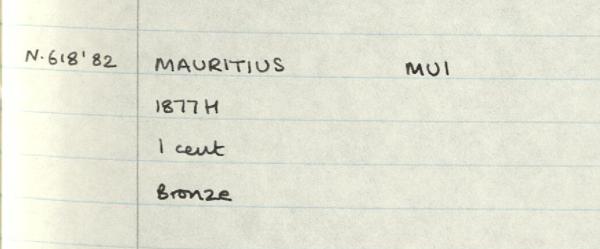 N.618'82 MAURITIUS MU1
1877H
1 cent
Bronze